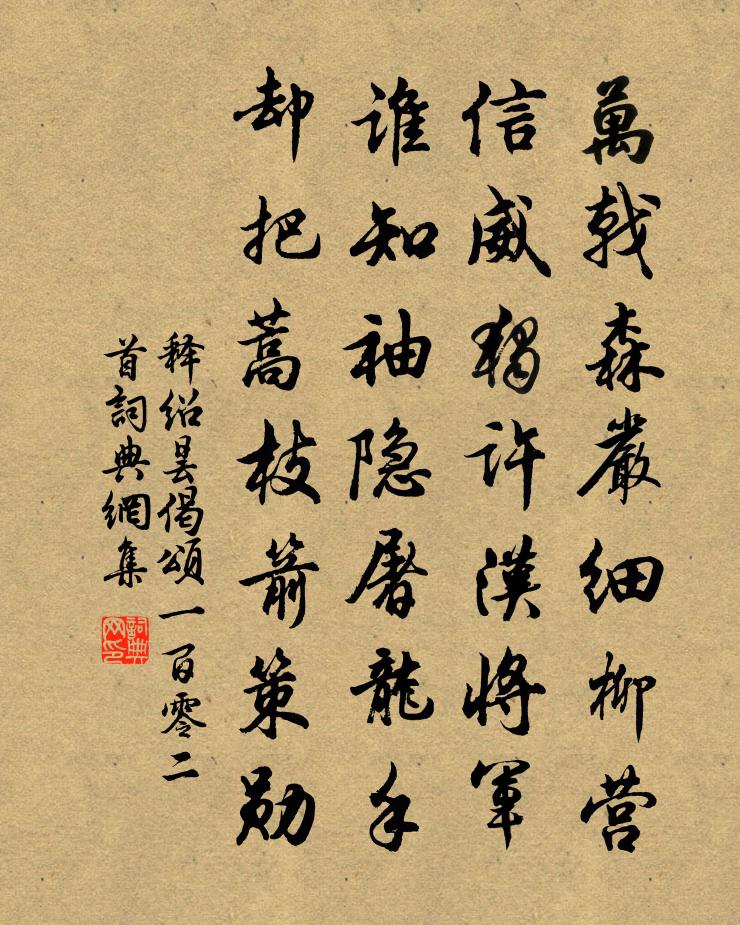 萬戟森嚴細柳营
信威獨許漢將軍
誰知袖隐屠龍手
却把蒿枝箭策勋
释绍曇偈頌一百零二
首詞典網集
詞典
网印